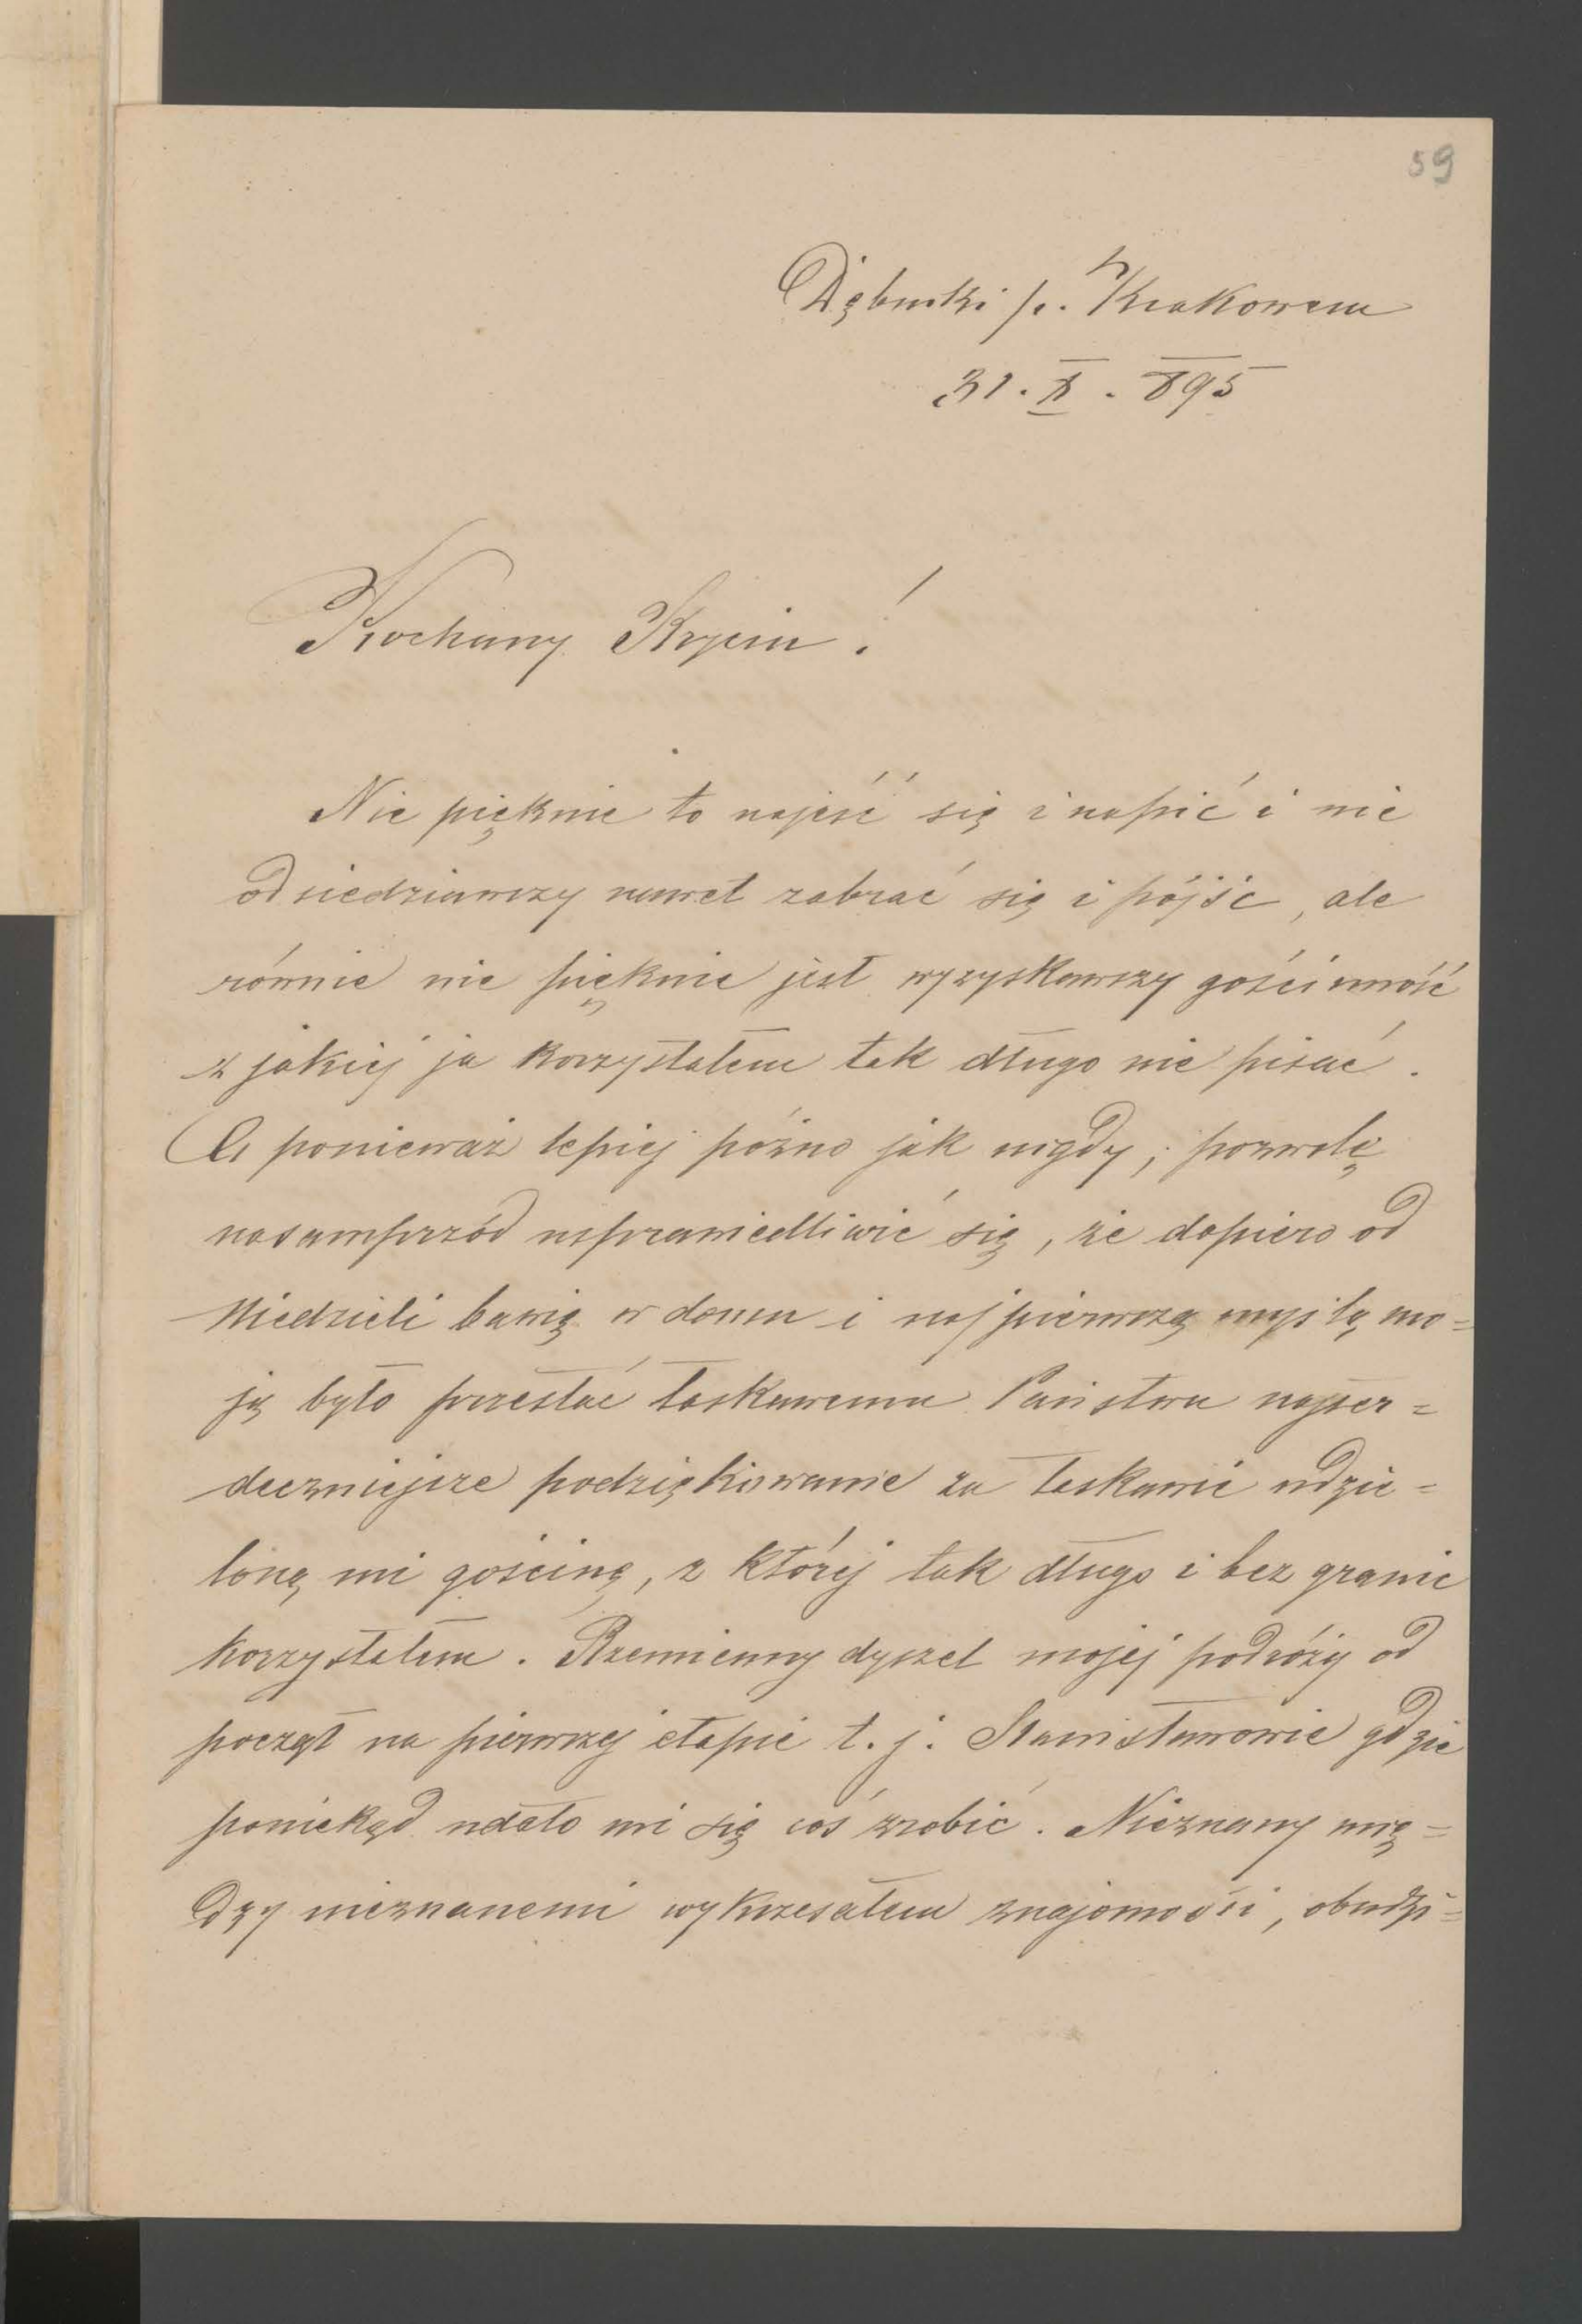 59
Dębniki p. Krakowem
31. X. 895
Kochany Krysiu!
Nie pięknie to najeść się i napić i nie
odsiedziawszy nawet zabrać się i pójść, ale
równie nie pięknie jest wyzyskawszy gościnność
z jakiej ja korzystałem tak długo nie pisać.
A ponieważ lepiej późno jak nigdy; pozwolę
nasamprzód usprawiedliwić się, że dopiero od
Niedzieli bawię w domu i najpierwszą myślą mo=
ją było przesłać łaskawemu Państwu najser=
deczniejsze podziękowanie za łaskawie udzie=
loną mi gościnę, z której tak długo i bez granic
korzystałem. Rzemienny dyszel mojej podróży od
począł na pierwszej etapie t. j. Stanisławowie gdzie
poniekąd udało mi się coś zrobić. Nieznany mię=
dzy nieznanemi wykrzesałem znajomości, obudzi=